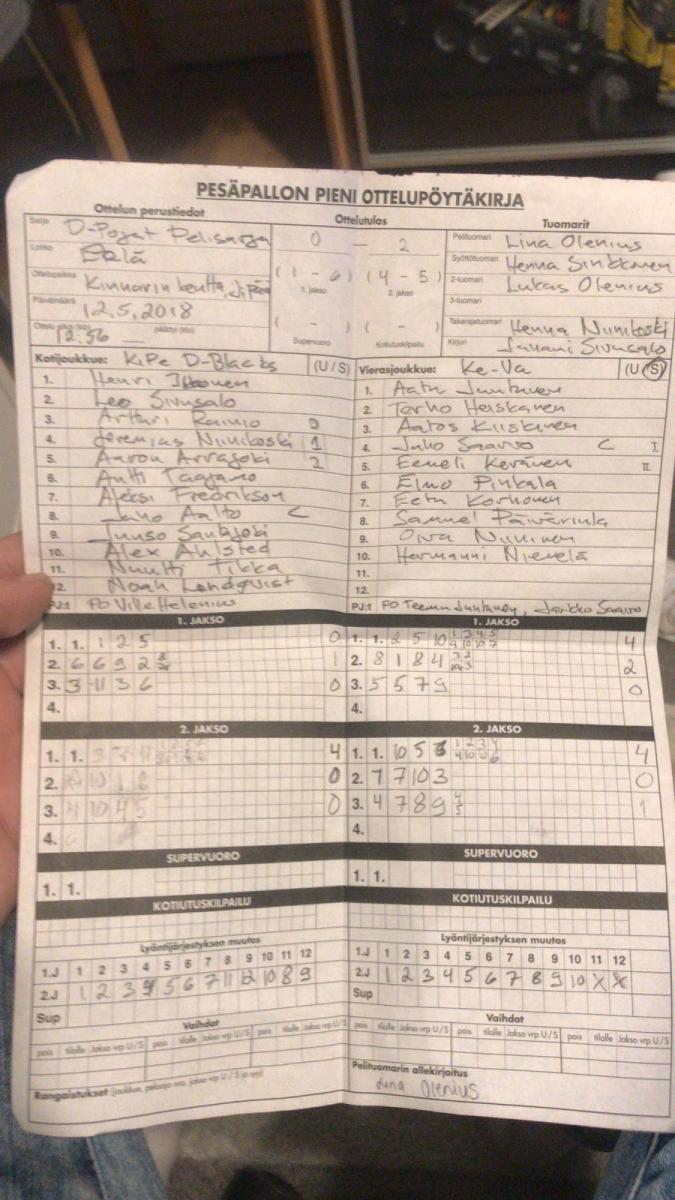 PESÄPALLON PIENI OTTELUPÖYTÄKIRJA
Ottelun perustiedot
Ottelutulos
Tuomarit
Sarja D-Pojat Pelisarja
Lohko Etelä
Ottelupaikka Kinnarin kenttä,
Päivämäärä 12.5.2018
12:56 päättyi (klo)
0 — 2
(1 - 6) (4 - 5)
1. jakso 2. jakso
( - ) ( - )
Supervuoro Kotiutuskilpailu
Pelituomari Lina Olenius
Syöttötuomari Henna Sinkkonen
2-tuomari Lukas Olenius
3-tuomari
Takarajatuomari Henna Niinikoski
Kirjuri Juhani Sivusalo
Kotijoukkue: KiPe D-Blacks (U/S)
1. Henri
2. Leo Sivusalo
3. Artturi Rainio 0
4. Jeremias Niinikoski 1
5. Aaron Arrajoki 2
6. Antti
7. Aleksi Fredrikson
8. Juho Aalto C
9. Juuso
10. Alex Ahlsted
11. Nuutti Tikka
12 Noah Lendqvist
PJ:t PO Ville Helenius
Vierasjoukkue: Ke-Va (U/S)
1. Aatu Juntunen
2. Terho Heiskanen
3. Aatos Kiiskinen
4. Juho Saarvo C I.
5. Eemeli Keränen II.
6. Elmo Pinkala
7. Eetu Korhonen
8. Samuel Päivärinta
9. Oiva Niininen
10. Hermanni Nievelä
11.
12.
PJ:t PO Teemu Juntunen, Jarkko Saarvo
1. JAKSO
1. 1. 1 2 5 0
2. 6 6 9 2 1
3. 3 11 3 6 0
4.
1. JAKSO
1. 1. 2 5 10 4
2. 8 1 8 4 2
3. 5 5 7 9 0
4.
2. JAKSO
1. 1. 4
2. 0
3. 4 10 4 5 0
4.
2. JAKSO
1. 1. 10 5 4
2. 1 7 10 3 0
3. 4 7 8 9 4 5 1
4.
SUPERVUORO
1. 1.
SUPERVUORO
1. 1.
KOTIUTUSKILPAILU
KOTIUTUSKILPAILU
Lyöntijärjestyksen muutos
1.J 1 2 3 4 5 6 7 8 9 10 11 12
2.J 1 2 3 4 5 6 7 11 12 10 8 9
Sup
Lyöntijärjestyksen muutos
1.J 1 2 3 4 5 6 7 8 9 10 11 12
2.J 1 2 3 4 5 6 7 8 9 10 X X
Sup
Vaihdot
pois tilalle Jakso vrp U/S pois tilalle Jakso vrp U/S pois tilalle Jakso vrp U/S
Vaihdot
pois tilalle Jakso vrp U/S pois tilalle Jakso vrp U/S pois tilalle Jakso vrp U/S
Rangaistukset
Pelituomarin allekirjoitus
Lina Olenius